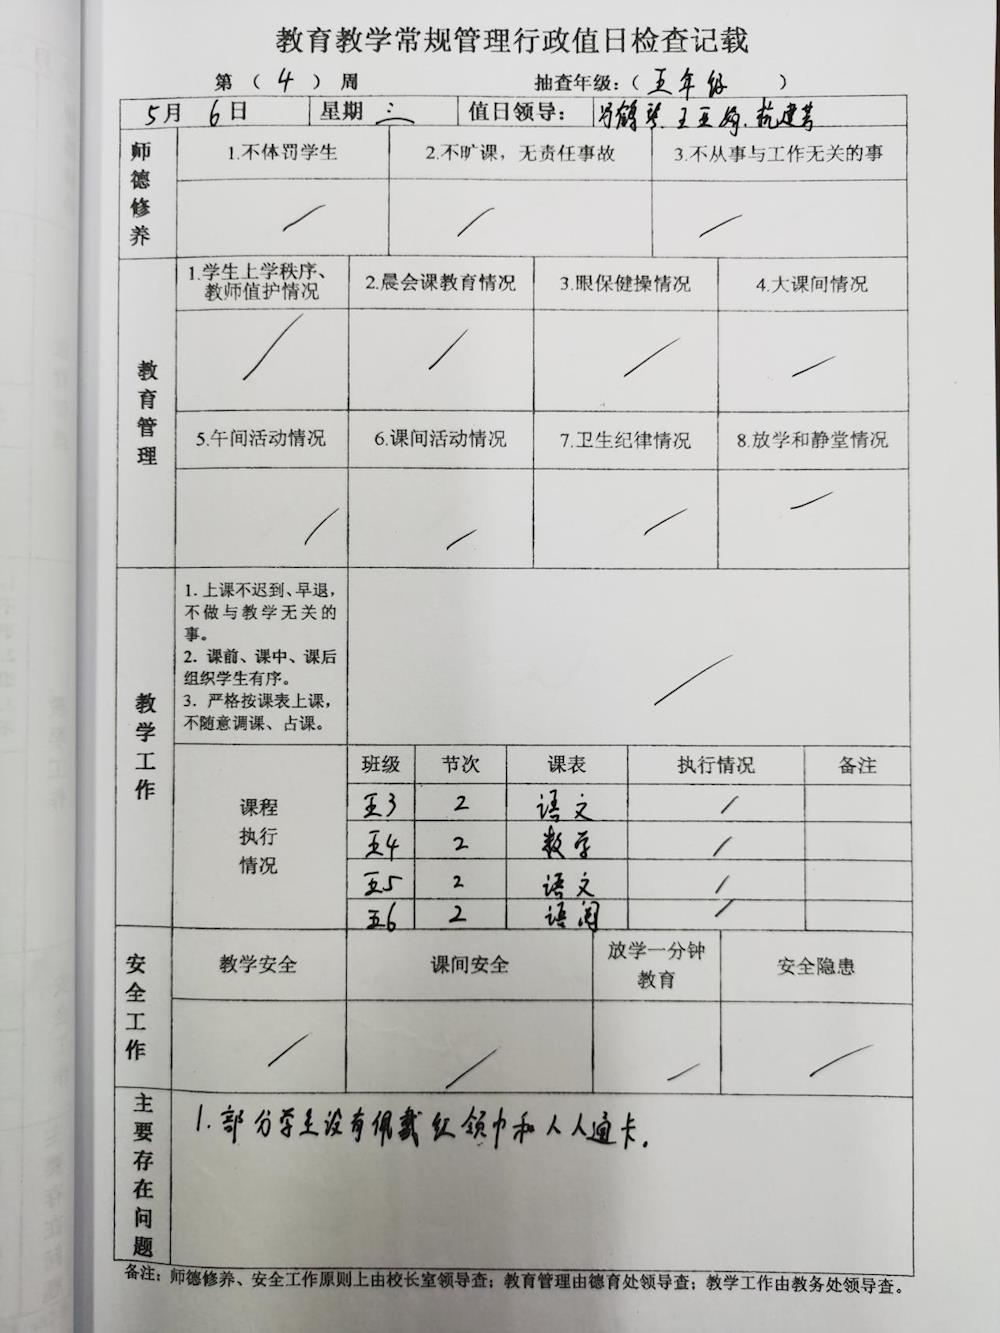 教育教学常规管理行政值日检查记载
第 （ 4 ） 周 抽查年级：（ 五年级 ）
5月 6日 星期 三 值日领导： 王亚
师德修养
1.不体罚学生 2.不旷课，无责任事故 3.不从事与工作无关的事
教育管理
1.学生上学秩序、
教师值护情况
2.晨会课教育情况 3.眼保健操情况 4.大课间情况
5.午间活动情况 6.课间活动情况 7.卫生纪律情况 8.放学和静堂情况
教学工作
1. 上课不迟到、早退，
不做与教学无关的
事。
2．课前、课中、课后
组织学生有序。
3．严格按课表上课，
不随意调课、占课。
课程
执行
情况
班级 节次 课表 执行情况 备注
五3 2 语文
五4 2 数学
五5 2 语文
五6 2 语阅
安全工作
教学安全 课间安全 放学一分钟
教育
安全隐患
主要存在问题
1. 部分学生没有佩戴红领巾和人人通卡。
备注：师德修养、安全工作原则上由校长室领导查；教育管理由德育处领导查；教学工作由教务处领导查。